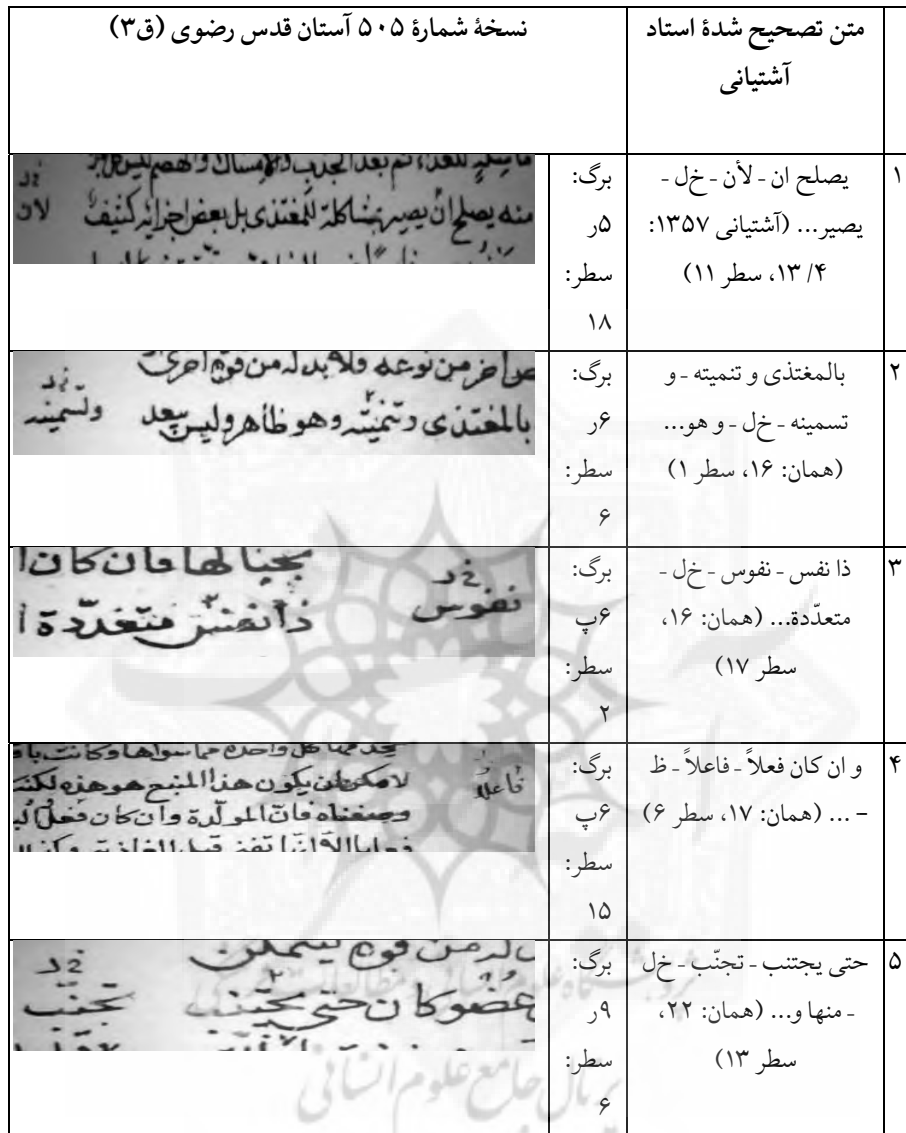 متن تصحیح شدۀ استاد آشتیانی
نسخۀ شمارۀ ۵۰۵ آستان قدس رضوی (ق۳)
۱
یصلح ان ـ لأن ـ خ‌ل ـ
یصیر... (آشتیانی ۱۳۵۷:
۴/ ۱۳، سطر ۱۱)
برگ:
۵ر
سطر:
۱۸
منه یصلح ان یصیر بمشاکلة للمغتذی بل بعض اجزائه کثیف
لان
۲
بالمغتذی و تنمیته ـ و
تسمینه ـ خ‌ل ـ و هو...
(همان: ۱۶، سطر ۱)
برگ:
۶ر
سطر:
۶
من نوعه فلا بد له من قوة اخری
بالمغتذی و تنمیته و هو ظاهر و لیس بعد
و تسمینه
۳
ذا نفس ـ نفوس ـ خ‌ل ـ
متعدّدة... (همان: ۱۶،
سطر ۱۷)
برگ:
۶پ
سطر:
۲
فان کان
ذا نفس متعدّدة
نفوس
۴
و ان کان فعلاً ـ فاعلاً ـ ظ
– ... (همان: ۱۷، سطر ۶)
برگ:
۶پ
سطر:
۱۵
یکون هذا المنبع هو هذه
فان المولدة و ان کان فعلا
فاعلا
۵
حتی یجتنب ـ تجنّب ـ خ‌ل
ـ منها و... (همان: ۲۲،
سطر ۱۳)
برگ:
۹ر
سطر:
۶
عضو کان حتی یجتنب
تجنّب
پرتال جامع علوم انسانی